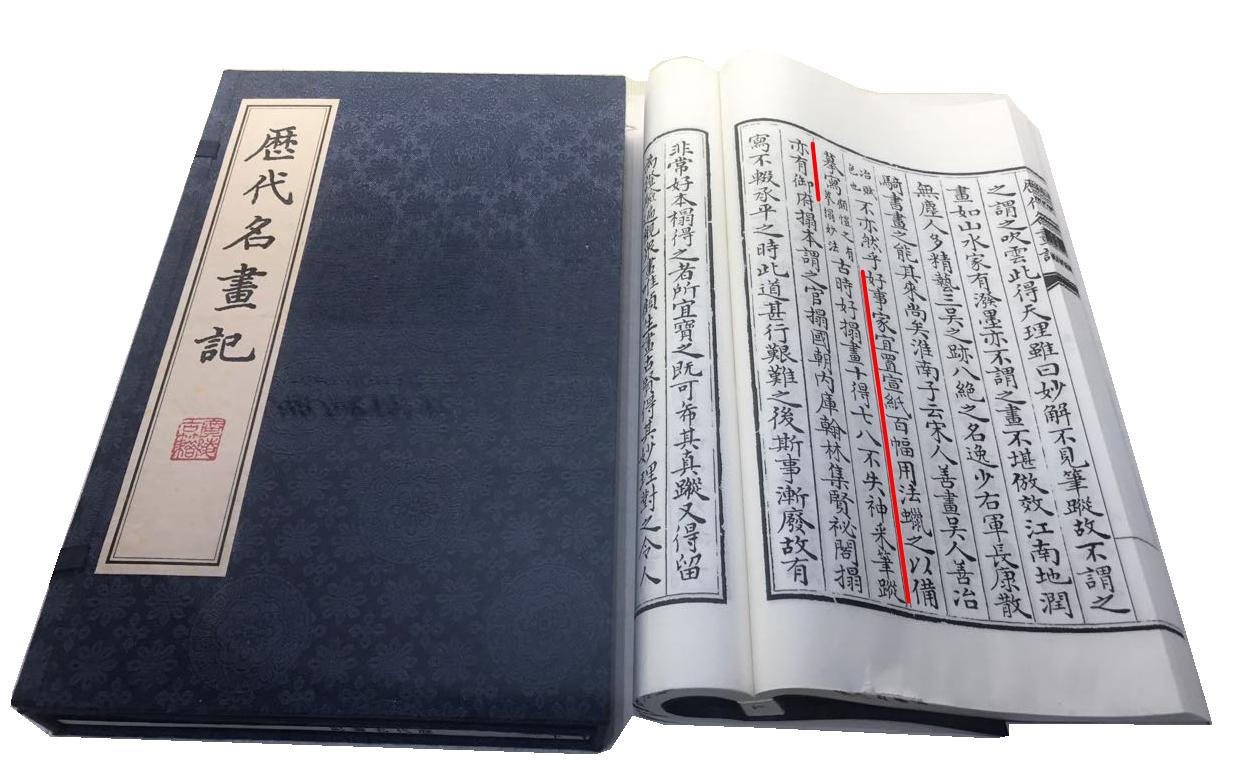 歴代名畫記
之謂之吹雲此得天理雖曰妙解不見筆蹤故不謂之
畫如山水家有潑墨亦不謂之畫不堪倣效江南地潤
無塵人多精藝三吳之跡八絕之名逸少右軍長康散
騎書畫之能其來尚矣淮南子云宋人善畫吳人善冶
冶賦色也不亦然乎好事家宜置宣紙百幅用法蠟之以備
摹寫顧愷之有摹搨妙法古時好搨畫十得七八不失神采筆蹤
亦有御府搨本謂之官搨國朝內庫翰林集賢祕閣搨
寫不輟承平之時此道甚行艱難之後斯事漸廢故有
非常好本搨得之者所宜寶之既可布其真蹤又得留
顧生畫古賢得其妙理對之令人